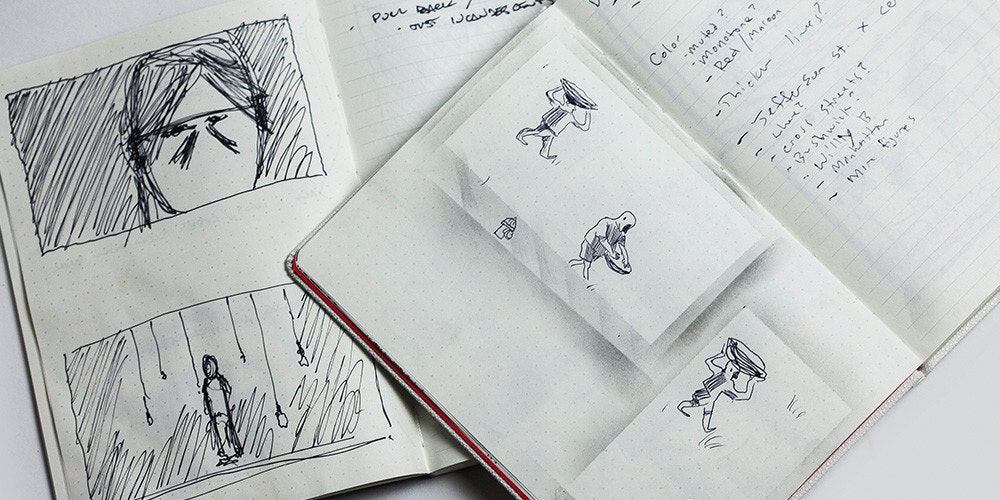 PULL BACK /
- JUST INCANDESCENT
Color - muted?
- monotone?
- Red/Maroon
- Thicker lines?
- Jefferson st x
- cross streets?
- Bushwick?
- Willy B
- Manhattan
- min figures